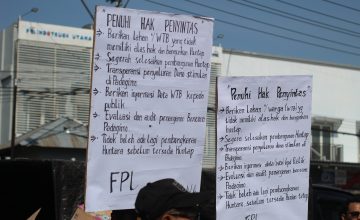 PELINDO
PENUHI HAK PENYINTAS
Berikan Lahan / WTB yang tidak
memiliki alas hak dan bangunkan Huntap
Segerah selesaikan pembangunan Huntap
Transparansi penyaluran Dana stimulan
di Padagimo
Berikan informasi Data WTB kepada
publik.
Evaluasi dan audit penanganan Bencana
Padagimo
Tidak boleh ada lagi pembongkaran
Huntara sebelum tersedia Huntap
FPL
Penuhi Hak Penyintas
Berikan Lahan / warga (WTB) yang
tidak memiliki alas hak dan bangunkan
huntap
Segerah selesaikan pembangunan Huntap
Transparansi penyaluran Dana stimulan di
Padagimo
Berikan informasi data WTB ke Publik.
Evaluasi dan audit penanganan Bencana
Padagimo
Tidak boleh ada lagi pembongkaran
Huntara sebelum tersedia Huntap
FPL